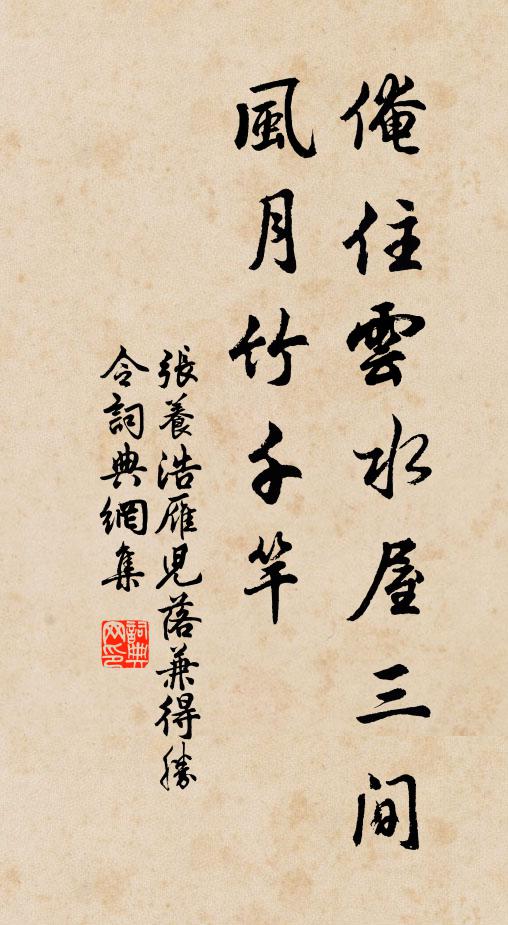 俺住雲水屋三间
風月竹千竿
張養浩雁児落兼得勝
令詞典網集
詞典
网印